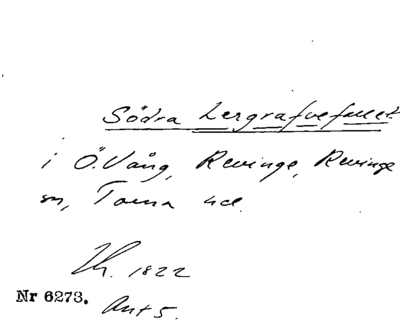 Södra Lergrafvefallet
i Ö. Vång, Revinge, Revinge
sn, Torna hd.
Lh. 1822
Nr 6273. Akt 5.